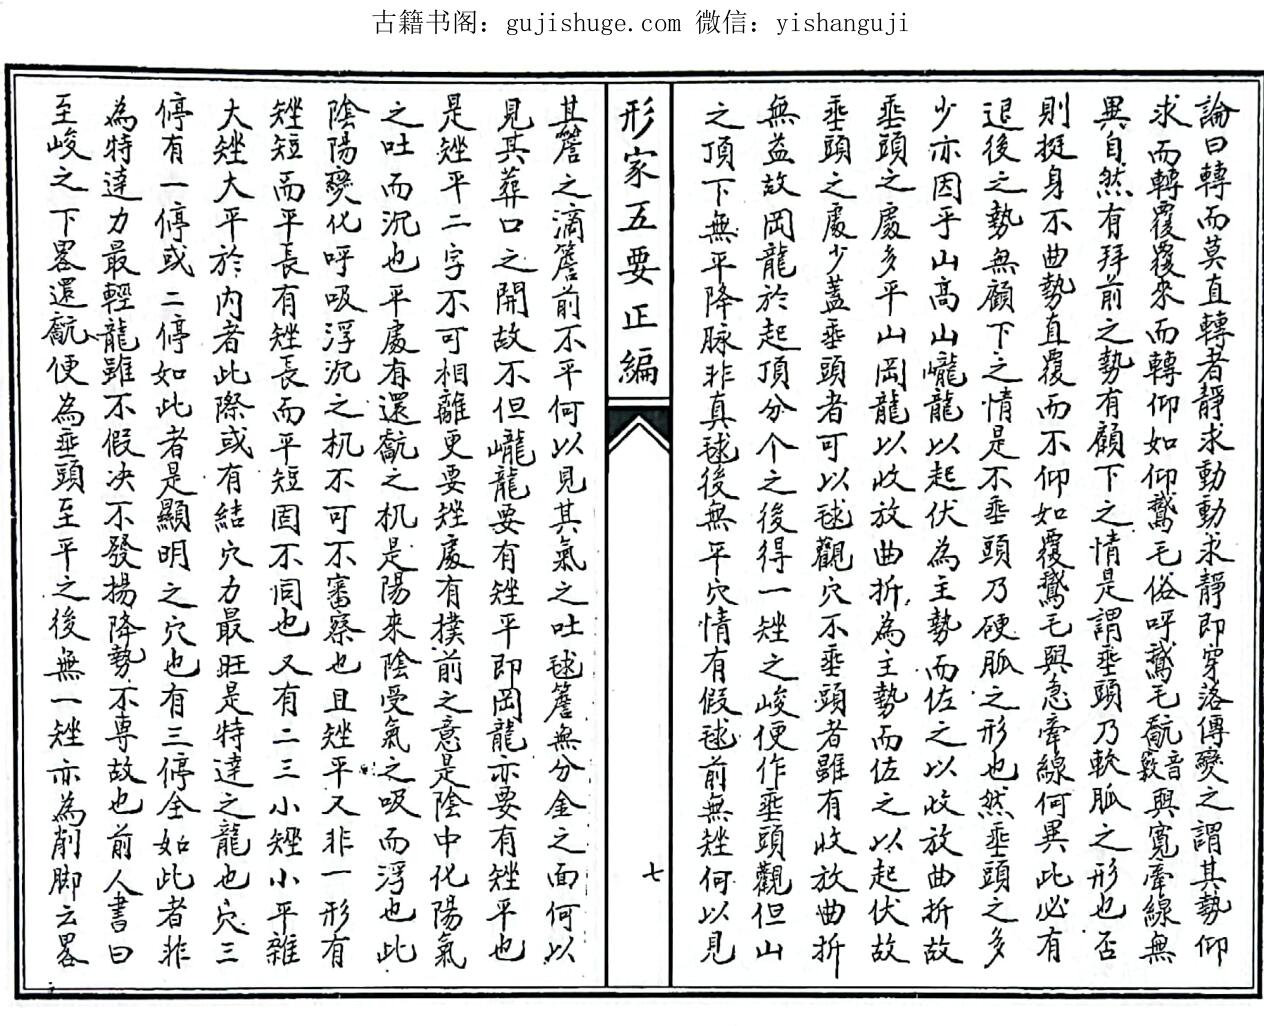 古籍书阁：gujishuge.com 微信：yishanguji
論曰轉而莫直轉者靜求動動求靜即穿落傳變之謂其勢仰
求而轉覆覆來而轉仰如仰鵞毛俗呼鵞毛翫音毅與寬牽線無
異自然有拜前之勢有顧下之情是謂垂頭乃軟胍之形也否
則挺身不曲勢直覆而不仰如覆鵞毛與急牽線何異此必有
退後之勢無顧下之情是不垂頭乃硬胍之形也然垂頭之多
少亦因乎山高山巃龍以起伏為主勢而佐之以收放曲折故
垂頭之處多平山岡龍以收放曲折為主勢而佐之以起伏故
垂頭之處少蓋垂頭者可以毬觀穴不垂頭者雖有收放曲折
無益故岡龍於起頂分个之後得一矬之峻便作垂頭觀但山
之頂下無平降脉非真毬後無平穴情有假毬前無矬何以見
形家五要正編
七
其簷之滴簷前不平何以見其氣之吐毬簷無分金之面何以
見其葬口之開故不但巃龍要有矬平即岡龍亦要有矬平也
是矬平二字不可相離更要矬處有撲前之意是陰中化陽氣
之吐而沉也平處有還翫之机是陽來陰受氣之吸而浮也此
陰陽變化呼吸浮沉之机不可不審察也且矬平又非一形有
矬短而平長有矬長而平短固不同也又有二三小矬小平雜
大矬大平於内者此際或有結穴力最旺是特達之龍也穴三
停有一停或二停如此者是顯明之穴也有三停全如此者非
為特達力最輕龍雖不假决不發揚降勢不專故也前人書曰
至峻之下畧還翫便為垂頭至平之後無一矬亦為削脚云畧